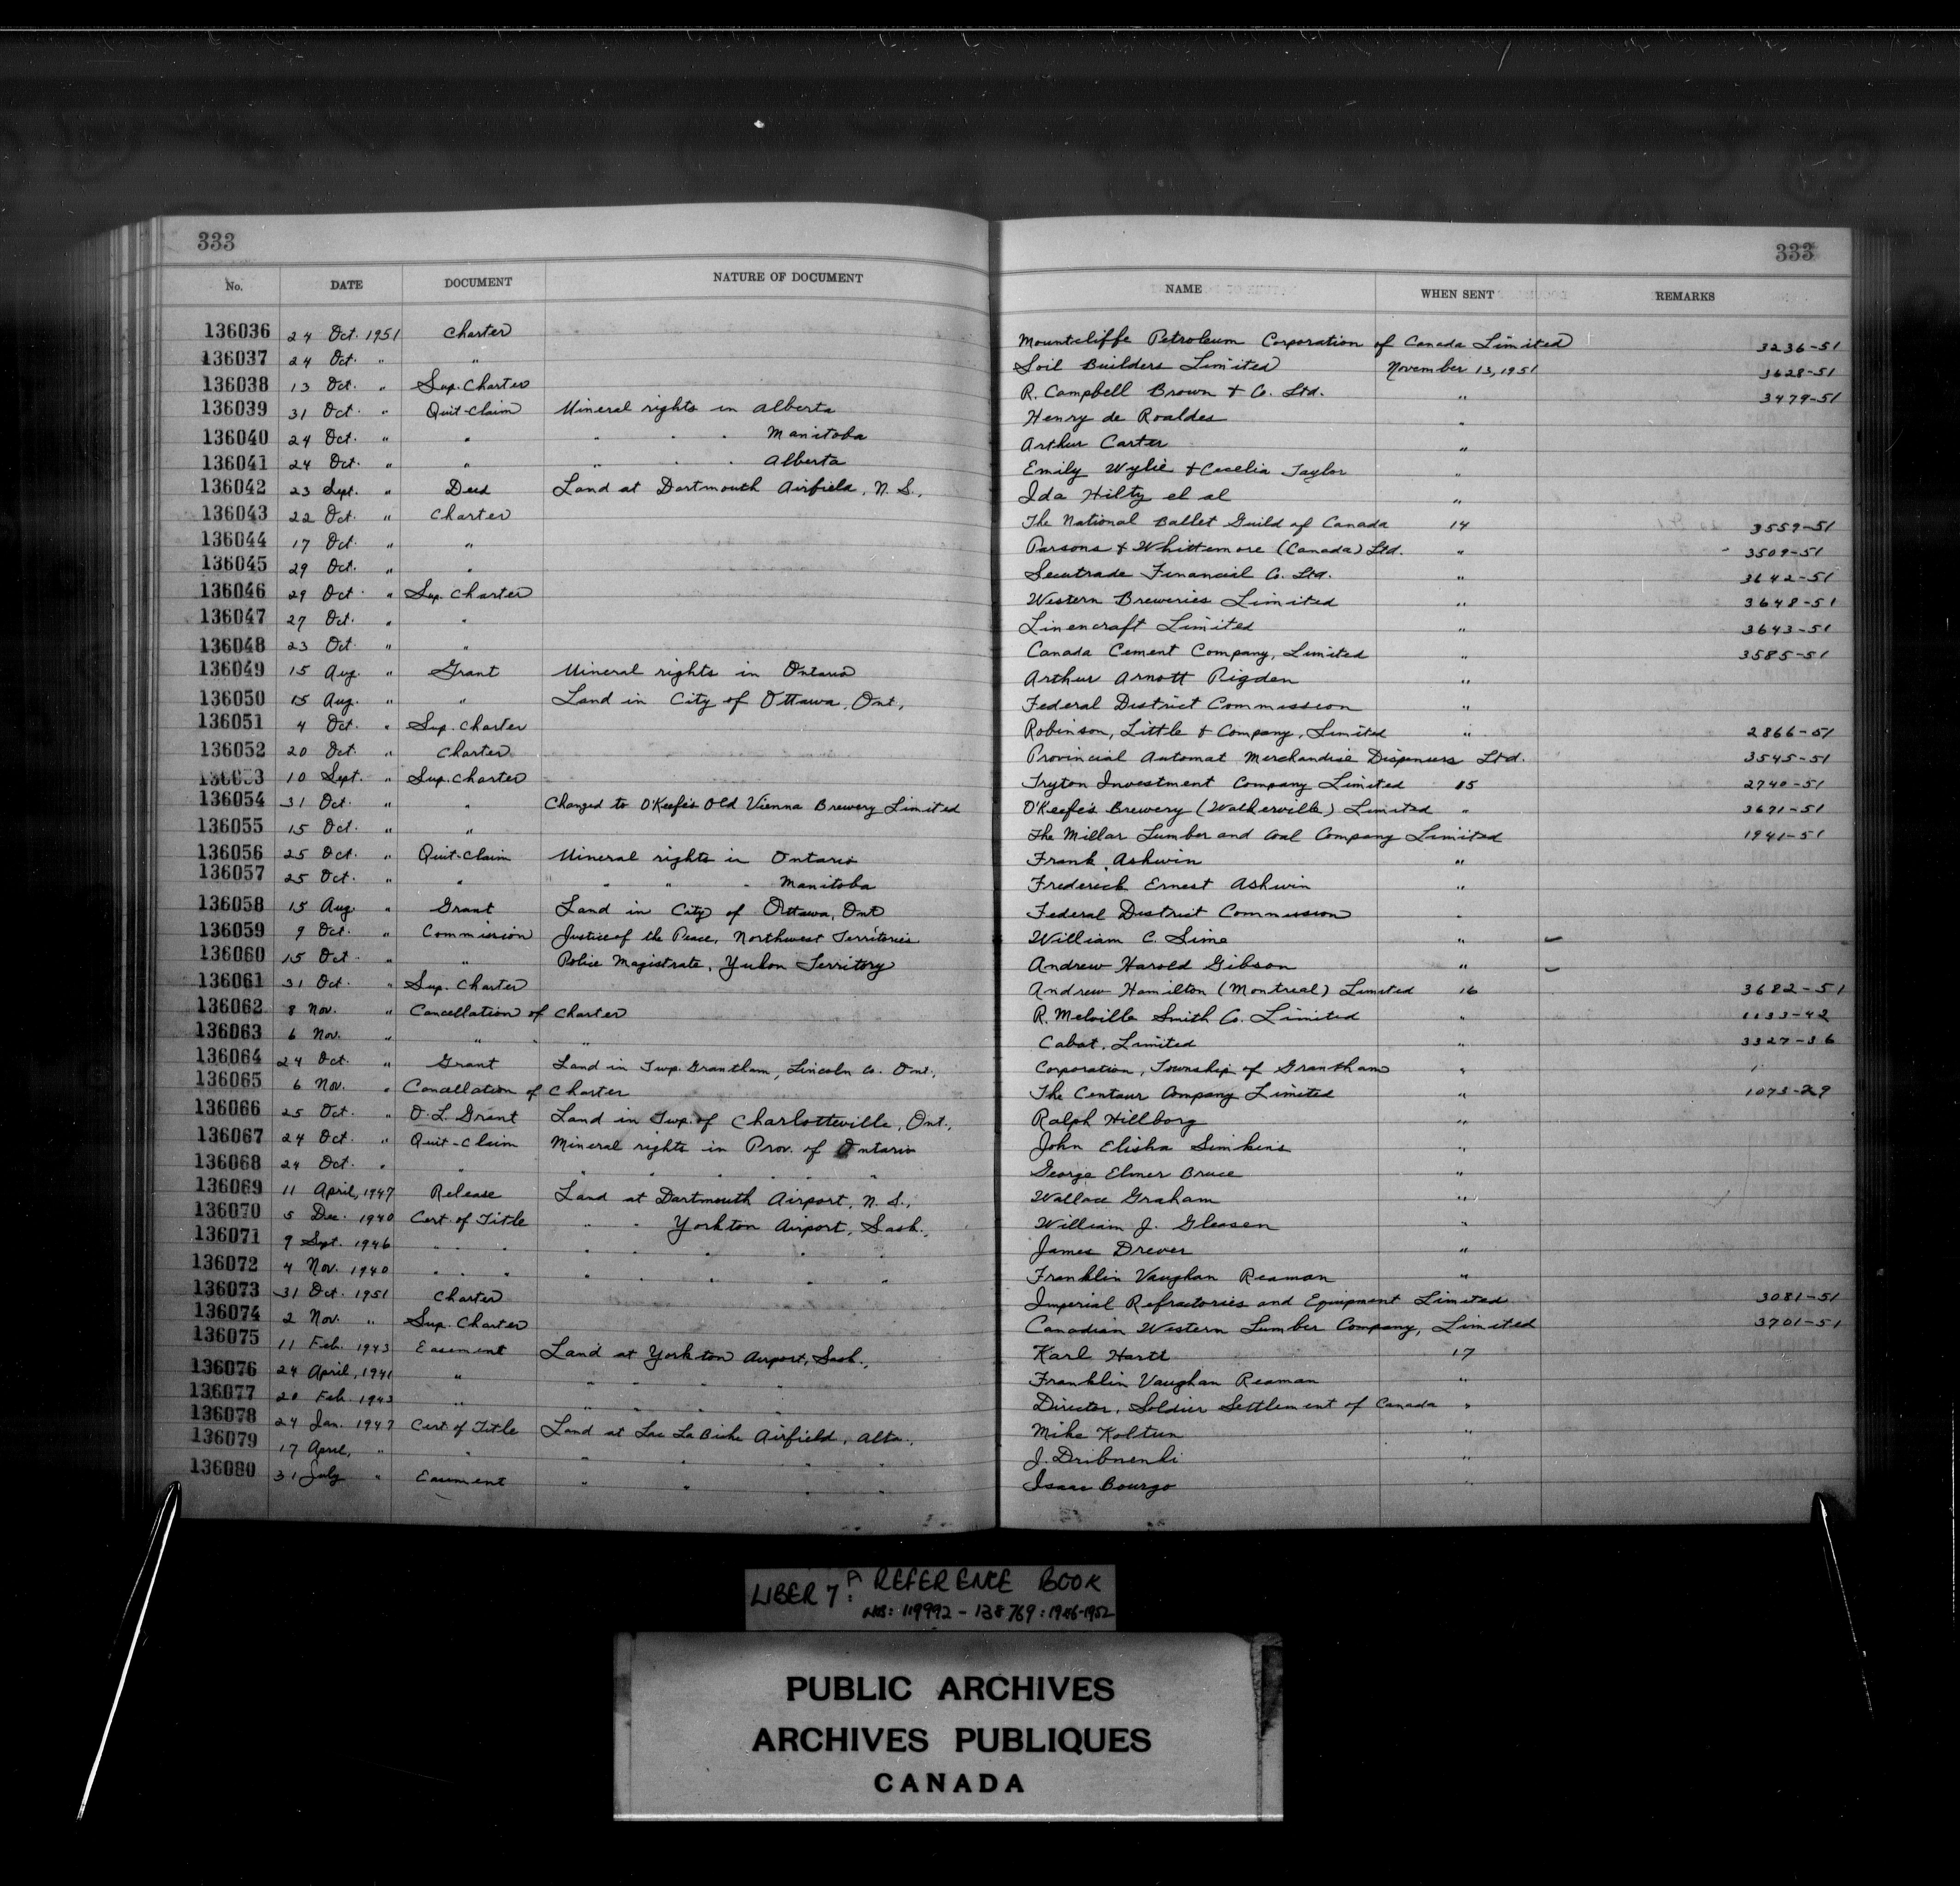 333 333
No. DATE DOCUMENT NATURE OF DOCUMENT NAME WHEN SENT REMARKS
136036 24 Oct. 1951 Charter Mountcliffe Petroleum Corporation of Canada Limited 3236-51
136037 24 Oct. " " Soil Builders Limited November 13, 1951 3628-51
136038 13 Oct. " Sup. Charter R. Campbell Brown & Co. Ltd. " 3479-51
136039 31 Oct. " Quit-Claim Mineral rights in Alberta Henry de Roaldes "
136040 24 Oct. " " " " " Manitoba Arthur Carter "
136041 24 Oct. " " " " " Alberta Emily Wylie & Cecelia Taylor "
136042 23 Sept. " Deed Land at Dartmouth Airfield, N.S., Ida Hilty et al "
136043 22 Oct. " Charter The National Ballet Guild of Canada 14 3559-51
136044 17 Oct. " " Parsons & Whittemore (Canada) Ltd. " 3509-51
136045 29 Oct. " " Secutrade Financial Co. Ltd. " 3642-51
136046 29 Oct. " Sup. Charter Western Breweries Limited " 3648-51
136047 27 Oct. " " Linencraft Limited " 3643-51
136048 23 Oct. " " Canada Cement Company, Limited " 3585-51
136049 15 Aug. " Grant Mineral rights in Ontario Arthur Arnott Rigden "
136050 15 Aug. " " Land in City of Ottawa, Ont., Federal District Commission "
136051 4 Oct. " Sup. Charter Robinson, Little & Company, Limited " 2866-51
136052 20 Oct. " Charter Provincial Automat Merchandise Dispensers Ltd. 3545-51
136053 10 Sept. " Sup. Charter Tryton Investment Company Limited 15 2740-51
136054 31 Oct. " " Changed to O'Keefe's Old Vienna Brewery Limited O'Keefe's Brewery (Walkerville) Limited " 3671-51
136055 15 Oct. " " The Millar Lumber and Coal Company Limited 1941-51
136056 25 Oct. " Quit-Claim Mineral rights in Ontario Frank Ashwin "
136057 25 Oct. " " " " " Manitoba Frederick Ernest Ashwin "
136058 15 Aug. " Grant Land in City of Ottawa, Ont Federal District Commission "
136059 9 Oct. " Commission Justice of the Peace, Northwest Territories William C. Sime "
136060 15 Oct. " " Police Magistrate, Yukon Territory Andrew Harold Gibson "
136061 31 Oct. " Sup. Charter Andrew Hamilton (Montreal) Limited 16 3682-51
136062 8 Nov. " Cancellation of Charter R. Melville Smith Co. Limited " 1133-42
136063 6 Nov. " " " " Cabot, Limited " 3327-36
136064 24 Oct. " Grant Land in Twp. Grantham, Lincoln Co. Ont., Corporation, Township of Grantham "
136065 6 Nov. " Cancellation of Charter The Centaur Company Limited " 1073-29
136066 25 Oct. " O. L. Grant Land in Twp. of Charlotteville, Ont., Ralph Hillborg "
136067 24 Oct. " Quit-Claim Mineral rights in Prov. of Ontario John Elisha Simkins "
136068 24 Oct. " " " " " " " George Elmer Bruce "
136069 11 April, 1947 Release Land at Dartmouth Airport, N.S., Wallace Graham "
136070 5 Dec. 1940 Cert. of Title " " Yorkton Airport, Sask., William J. Gleasen "
136071 9 Sept. 1946 " " " " " " " " James Drever "
136072 4 Nov. 1940 " " " " " " " " Franklin Vaughan Reaman "
136073 31 Oct. 1951 Charter Imperial Refractories and Equipment Limited 3081-51
136074 2 Nov. " Sup. Charter Canadian Western Lumber Company, Limited 3701-51
136075 11 Feb. 1943 Easement Land at Yorkton Airport, Sask., Karl Hartt 17
136076 24 April, 1941 " " " " " Franklin Vaughan Reaman "
136077 20 Feb. 1943 " " " " " Director, Soldier Settlement of Canada "
136078 24 Jan. 1947 Cert. of Title Land at Lac La Biche Airfield, Alta., Mike Koltun "
136079 17 April, " " " " " " J. Dribnenki "
136080 31 July " Easement " " " " Isaac Bourgo "
LIBER 7: A REFERENCE BOOK
NB: 119992 - 138769: 1946-1952
PUBLIC ARCHIVES
ARCHIVES PUBLIQUES
CANADA